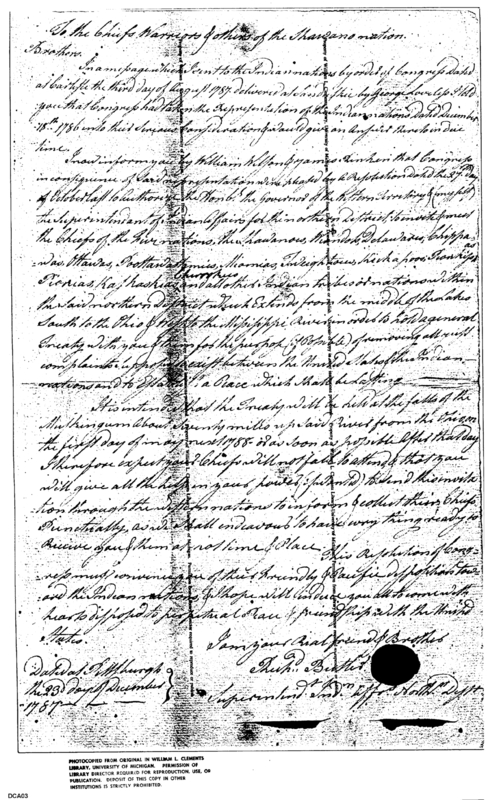 To the Chiefs Warriors & others of the Shawano nation.
Brothers.
In a message which I sent to the Indian nations by order of Congress dated
at Carlisle the third day of August 1787. delivered at by George Loveless I told
you that Congress had taken the Representation of the Indian nations dated December
18th 1786 into their Serious Consideration & would give an answer thereto in due
time.
I now inform you by William Wilson & James Rinken that Congress
in consequence of Said representation were pleased by a Resolution dated the
of October last to authorize the Honble. the Governor of the Western Territory & (my self)
the Superintendant of Indian Affairs for the northern District, to invite & meet
the Chiefs of the Five nations, the Shawanous, Wiandots, Delawares, Chippa-
was Ottawas, Miamias,
Kaskaskias and all other Indian tribes or nations within
the Said northern district which Extends from the middle of the Lakes
South to the Ohio & West to the Mississippi River in order to hold a general
Treaty with you & them for the purpose (if possible) of removing all
complaints supposed to exist between the United States & the Indian
nations and to Establish a Peace which Shall be lasting
It is intended that the Treaty will be held at the falls of the
Muskingum about Seventy miles up Said River from the Ohio on
the first day of may next 1788 or as soon as possible after that day
I therefore expect your Chiefs will not fail to attend & that you
will give all the help in your power to send this invita-
tion through the different nations to inform & collect their Chiefs
Punctually, as we Shall endeavour to have every thing ready to
Receive you & them at that time & Place This Resolution of Cong-
ress must convince you of their friendly & Pacific disposition to-
ward the Indian nations & I hope will induce you all to come with
hearts disposed to perpetual Peace & friendship with the United
States.
I am your Real friend & Brother
Richd. Butler
Superintendt. Indn. affrs. Northn. Dept.
Dated at Pittsburgh
the 23d. day of December
1787
PHOTOCOPIED FROM ORIGINAL IN WILLIAM L. CLEMENTS
LIBRARY, UNIVERSITY OF MICHIGAN. PERMISSION OF
LIBRARY DIRECTOR REQUIRED FOR REPRODUCTION, USE, OR
PUBLICATION. DEPOSIT OF THIS COPY IN OTHER
INSTITUTIONS IS STRICTLY PROHIBITED.
DCA03